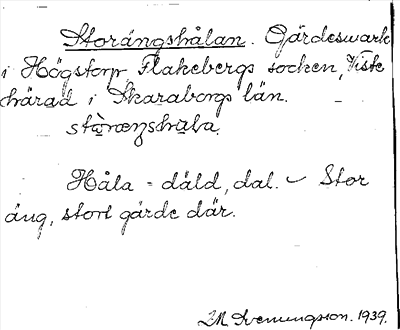 Storängshålan. Gärdeswark
i Högstorp Flakebergs socken, Viste
härad i Skaraborgs län.
Håla = dåld, dal. Stor
äng, stort gärde där.
1939.